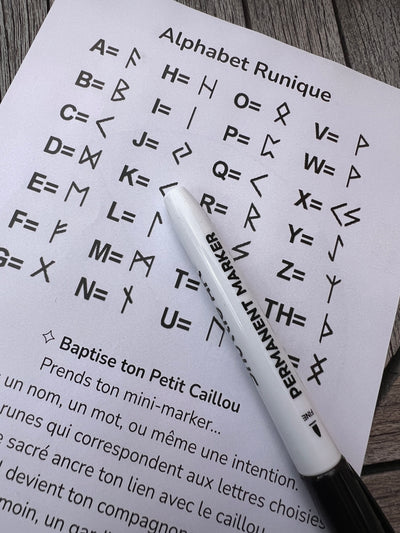 Alphabet Runique
A= ᚨ
B= ᛒ
C= ᚲ
D= ᛞ
E= ᛖ
F= ᚠ
G= ᚷ
H= ᚺ
I= ᛁ
J= ᛃ
K= ᚲ
L= ᛚ
M= ᛗ
N= ᚾ
O= ᛟ
P= ᛈ
Q= ᚲ
R= ᚱ
ᛊ
T=
U= ᚢ
V= ᚹ
W= ᚹ
X= ᚲᛊ
Y= ᛇ
Z= ᛉ
TH= ᚦ
= ᛝ
✧ Baptise ton Petit Caillou
Prends ton mini-marker...
un nom, un mot, ou même une intention.
runes qui correspondent aux lettres choisies
sacré ancre ton lien avec le caillou
devient ton compagnon
un
PERMANENT MARKER
FINE